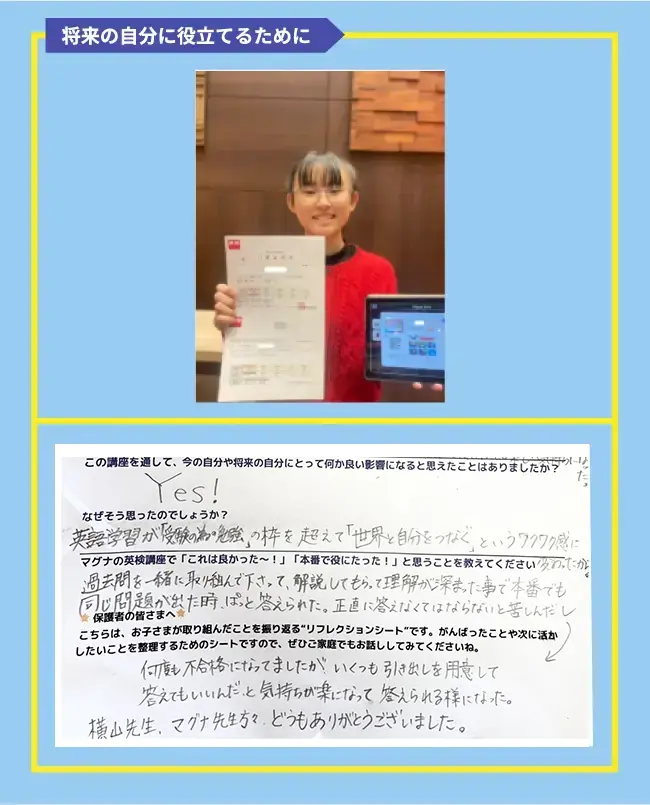 将来の自分に役立てるために
この講座を通して、今の自分や将来の自分にとって何か良い影響になると思えたことはありましたか？
Yes!
なぜそう思ったのでしょうか？
英語学習が「受験の為の勉強」の枠を超えて「世界と自分をつなぐ」というワクワク感に
変わったから
マグナの英検講座で「これは良かった〜！」「本番で役にたった！」と思うことを教えてください
過去問を一緒に取り組んで下さって、解説してもらって理解が深まった事で本番でも
同じ問題が出た時、ぱっと答えられた。正直に答えなくてはならないと苦しんだし
保護者の皆さまへ
こちらは、お子さまが取り組んだことを振り返る“リフレクションシート”です。がんばったことや次に活か
したいことを整理するためのシートですので、ぜひご家庭でもお話ししてみてくださいね。
何度も不合格になってましたが、いくつも引き出しを用意して
答えてもいいんだと気持ちが楽になって、答えられる様になった。
横山先生、マグナ先生方々、どうもありがとうございました。